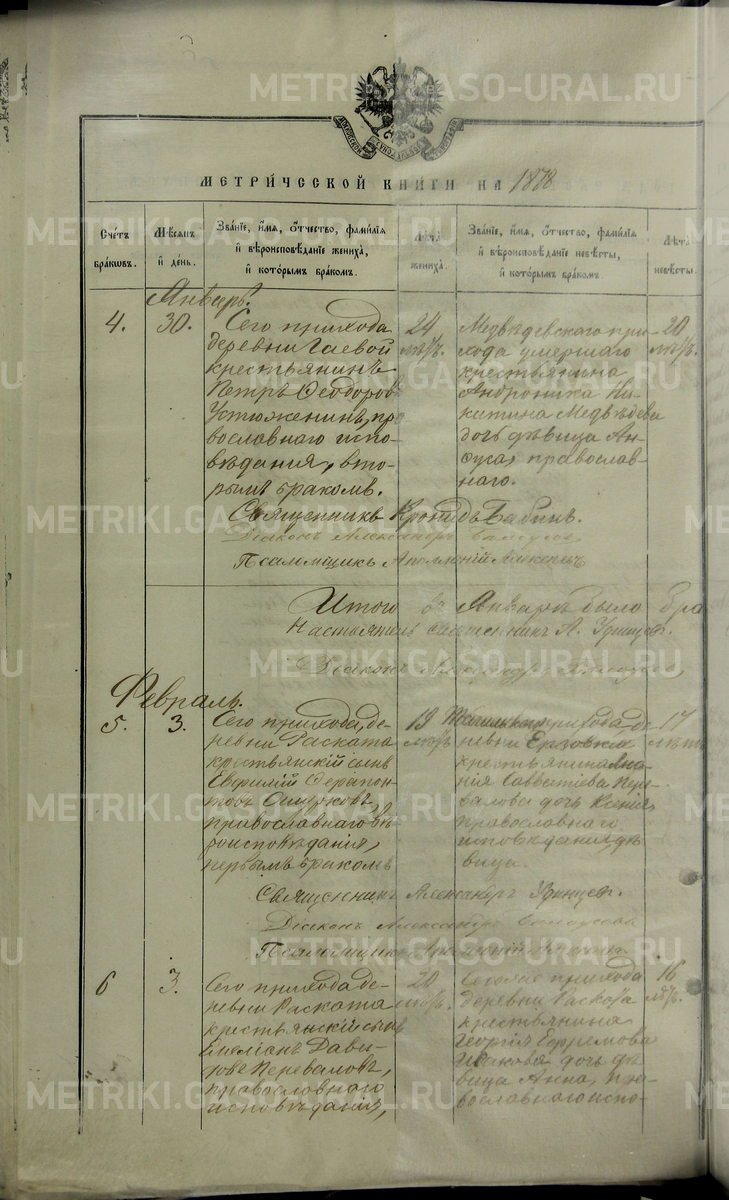 МЕТРИЧЕСКОЙ КНИГИ НА 1878
Счетъ браковъ.
Мѣсяцъ и день.
Званіе, имя, отчество, фамилія и вѣроисповѣданіе жениха, и которымъ бракомъ.
Лѣта жениха.
Званіе, имя, отчество, фамилія и вѣроисповѣданіе невѣсты, и которымъ бракомъ.
Лѣта невѣсты.
Январь.
4.
30.
Сего прихода
деревни Гаевой
крестьянинъ
Петръ Ѳеодоровъ
Устюженинъ, пра-
вославнаго испо-
вѣданія, вто-
рымъ бракомъ.
24
лѣтъ.
Медвѣдевскаго при-
хода умершаго
крестьянина
Андроника Ни-
китина Медвѣдева
дочь дѣвица Ан-
фуса, православ-
наго.
20
лѣтъ.
Священникъ Кронидъ Бабинъ.
Діаконъ Александръ
Псаломщикъ
Итого въ Январѣ было бра
Настоятель священникъ А.
Діаконъ Александръ
Февраль.
5.
3.
Сего прихода, де-
ревни Раската
крестьянскій сынъ
Евфимій Ѳерапон-
товъ
православнаго вѣ-
роисповѣданія,
первымъ бракомъ
19
лѣтъ
прихода де-
ревни
крестьянина
Савватіева Пере-
валова дочь Ксенія,
православнаго
исповѣданія, дѣ-
вица.
17
лѣтъ
Священникъ Александръ
Діаконъ Александръ
Псаломщикъ
6
3.
Сего прихода де-
ревни Раската
крестьянскій сынъ
Емеліанъ Дави-
довъ Переваловъ,
православнаго
исповѣданія,
20
лѣтъ.
Сего же прихода
деревни Раската
крестьянина
Георгія Ефремова
Исакова дочь дѣ-
вица Анна, пра-
вославнаго испо-
16
лѣтъ.
METRIKI.GASO-URAL.RU